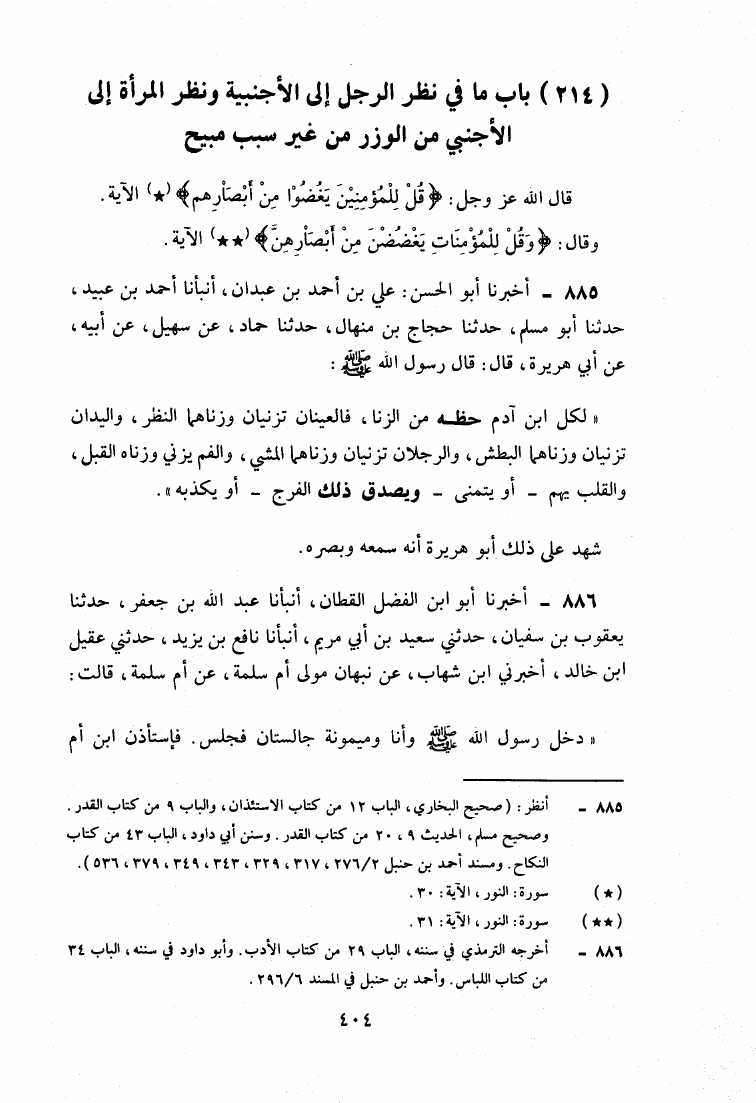 ( ٢١٤ ) باب ما في نظر الرجل إلى الأجنبية ونظر المرأة إلى
الأجنبي من الوزر من غير سبب مبيح
قال الله عز وجل : ﴿ قُلْ لِلْمُؤمِنِيْنَ يَغُضُوْا مِنْ أَبْصَاْرِهِم ﴾ (★) الآية .
وقال : ﴿ وَقُلْ لِلْمُؤْمِنَاتِ يَغْضُضْنَ مِنْ أَبْصَاْرِهِنَّ ﴾ (★★) الآية .
٨٨٥ ـ أخبرنا أبو الحسن : علي بن أحمد بن عبدان ، أنبأنا أحمد بن عبيد ،
حدثنا أبو مسلم ، حدثنا حجاج بن منهال ، حدثنا حماد ، عن سهيل ، عن أبيه ،
عن أبي هريرة ، قال : قال رسول الله ﷺ :
« لكل ابن آدم حظــه من الزنا ، فالعينان تزنيان وزناهما النظر ، واليدان
تزنيان وزناهما البطش ، والرجلان تزنيان وزناهما المشي ، والفم يزني وزناه القبل ،
والقلب يهم ـ أو يتمنى ـ ويصدق ذلك الفرج ـ أو يكذبه » .
شهد على ذلك أبو هريرة أنه سمعه وبصره .
٨٨٦ ـ أخبرنا أبو ابن الفضل القطان ، أنبأنا عبد الله بن جعفر ، حدثنا
يعقوب بن سفيان ، حدثني سعيد بن أبي مريم ، أنبأنا نافع بن يزيد ، حدثني عقيل
ابن خالد ، أخبرني ابن شهاب ، عن نبهان مولى أم سلمة ، عن أم سلمة ، قالت :
« دخل رسول الله ﷺ وأنا وميمونة جالستان فجلس . فإستأذن ابن أم
٨٨٥ ـ أنظر : ( صحيح البخاري ، الباب ١٢ من كتاب الاستئذان ، والباب ٩ من كتاب القدر .
وصحيح مسلم ، الحديث ٩ ، ٢٠ من كتاب القدر . وسنن أبي داود ، الباب ٤٣ من كتاب
النكاح . ومسند أحمد بن حنبل ٢٧٦/٢ ، ٣١٧ ، ٣٢٩ ، ٣٤٣ ، ٣٤٩ ، ٣٧٩ ، ٥٣٦ ) .
(★) سورة : النور ، الآية : ٣٠ .
(★★) سورة : النور ، الآية : ٣١ .
٨٨٦ ـ أخرجه الترمذي في سننه ، الباب ٢٩ من كتاب الأدب . وأبو داود في سننه ، الباب ٣٤
من كتاب اللباس . وأحمد بن حنبل في المسند ٢٩٦/٦ .
٤٠٤